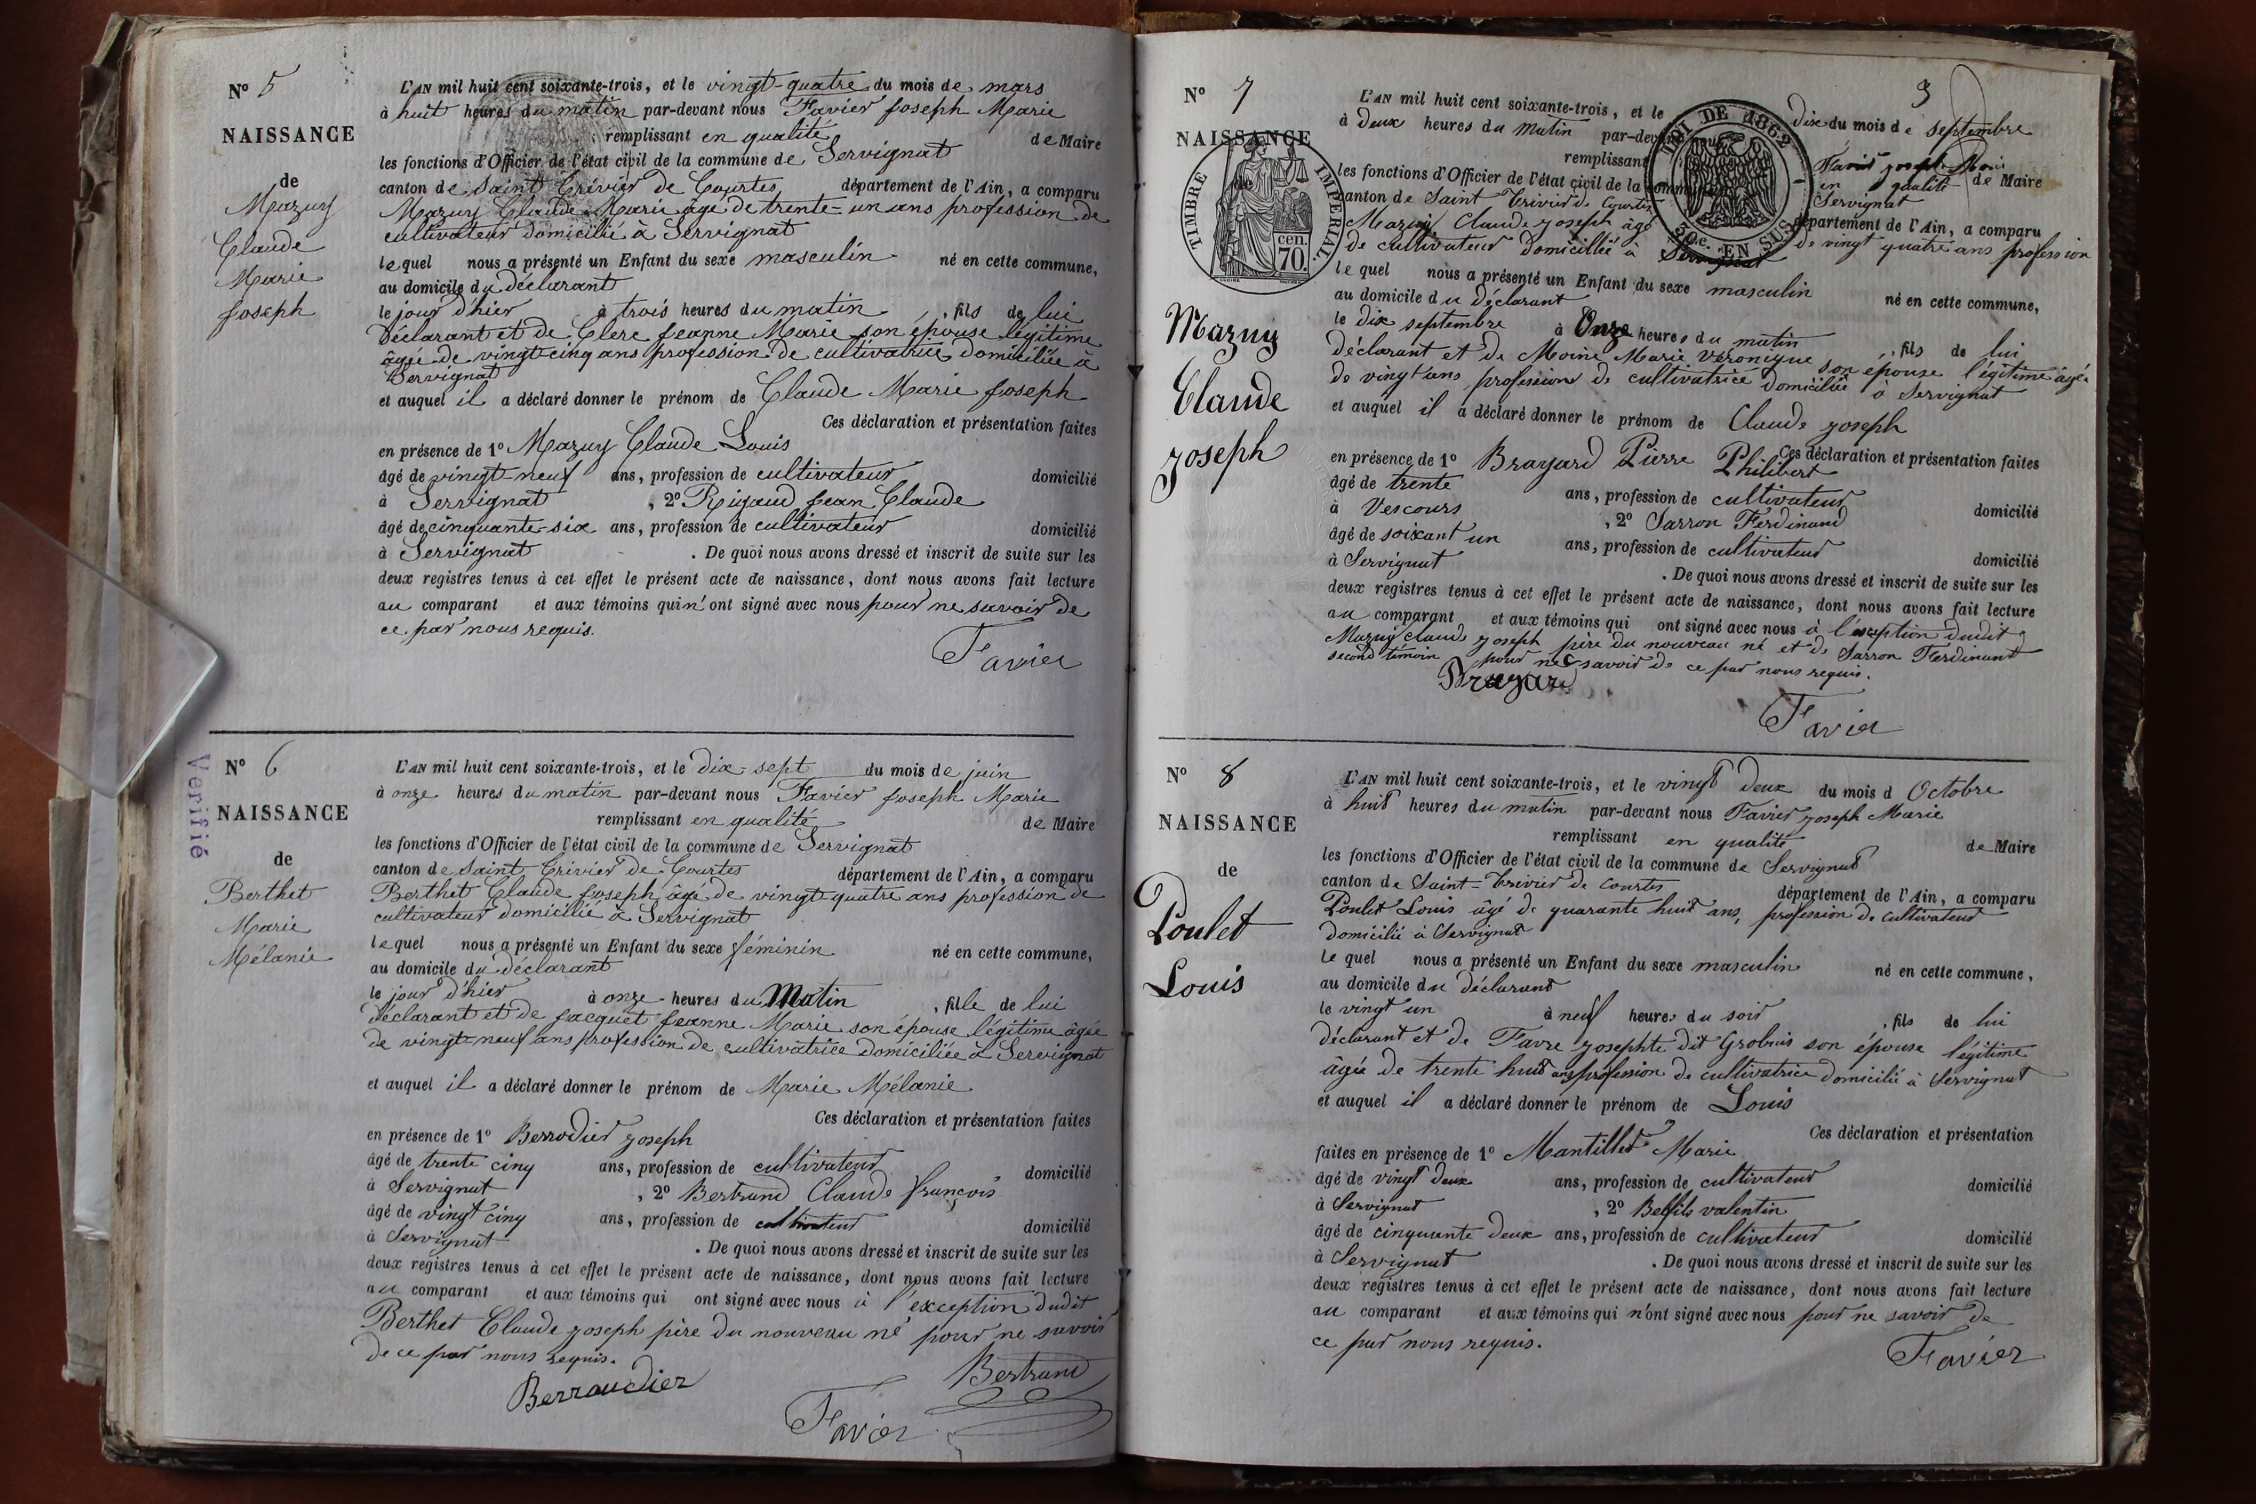 N° 5
NAISSANCE
de
Mazuy
Claude
Marie
Joseph
L'AN mil huit cent soixante-trois, et le vingt-quatre du mois de mars
à huit heures du matin par-devant nous Favier Joseph Marie
remplissant en qualité de Maire
les fonctions d'Officier de l'état civil de la commune de Servignat
canton de Saint Trivier de Courtes, département de l'Ain, a comparu
Mazuy Claude Marie âgé de trente-un ans profession de
cultivateur domicilié à Servignat
lequel nous a présenté un Enfant du sexe masculin né en cette commune,
au domicile du déclarant
le jour d'hier à trois heures du matin, fils de lui
Déclarant et de Clerc Jeanne Marie son épouse légitime
âgée de vingt-cinq ans profession de cultivatrice domiciliée à
Servignat
et auquel il a déclaré donner le prénom de Claude Marie Joseph
Ces déclaration et présentation faites
en présence de 1° Mazuy Claude Louis
âgé de vingt-neuf ans, profession de cultivateur domicilié
à Servignat, 2° Rigaud Jean Claude
âgé de cinquante-six ans, profession de cultivateur domicilié
à Servignat. De quoi nous avons dressé et inscrit de suite sur les
deux registres tenus à cet effet le présent acte de naissance, dont nous avons fait lecture
au comparant et aux témoins qui n'ont signé avec nous pour ne savoir de
ce par nous requis.
Favier
Verifié
N° 6
NAISSANCE
de
Berthet
Marie
Mélanie
L'AN mil huit cent soixante-trois, et le dix-sept du mois de juin
à onze heures du matin par-devant nous Favier Joseph Marie
remplissant en qualité de Maire
les fonctions d'Officier de l'état civil de la commune de Servignat
canton de Saint Trivier de Courtes département de l'Ain, a comparu
Berthet Claude Joseph âgé de vingt-quatre ans profession de
cultivateur domicilié à Servignat
lequel nous a présenté un Enfant du sexe féminin né en cette commune,
au domicile du déclarant
le jour d'hier à onze heures du Matin, fille de lui
déclarant et de Jacquet Jeanne Marie son épouse légitime âgée
de vingt-neuf ans profession de cultivatrice domiciliée à Servignat
et auquel il a déclaré donner le prénom de Marie Mélanie
Ces déclaration et présentation faites
en présence de 1° Berrodier Joseph
âgé de trente cinq ans, profession de cultivateur domicilié
à Servignat, 2° Bertrand Claude françois
âgé de vingt cinq ans, profession de cultivateur domicilié
à Servignat. De quoi nous avons dressé et inscrit de suite sur les
deux registres tenus à cet effet le présent acte de naissance, dont nous avons fait lecture
au comparant et aux témoins qui ont signé avec nous à l'exception dudit
Berthet Claude Joseph père du nouveau né pour ne savoir
de ce par nous requis.
Berraudier
Bertrand
Favier
3
N° 7
NAISSANCE
TIMBRE IMPERIAL.
cen. 70.
LOI DE 1862
30c. EN SUS
Mazuy
Claude
Joseph
L'AN mil huit cent soixante-trois, et le dix du mois de septembre
à deux heures du matin par-devant nous Favier Joseph Marie
remplissant en qualité de Maire
les fonctions d'Officier de l'état civil de la commune Servignat
canton de Saint Trivier de Courtes département de l'Ain, a comparu
Mazuy Claude Joseph âgé de vingt quatre ans profession
de cultivateur domicilié à Servignat
lequel nous a présenté un Enfant du sexe masculin né en cette commune,
au domicile du déclarant
le dix septembre à Onze heures du matin, fils de lui
déclarant et de Moine Marie Véronique son épouse légitime âgée
de vingt ans profession de cultivatrice domiciliée à Servignat
et auquel il a déclaré donner le prénom de Claude Joseph
Ces déclaration et présentation faites
en présence de 1° Brayard Pierre Philibert
âgé de trente ans, profession de cultivateur domicilié
à Vescours, 2° Sarron Ferdinand
âgé de soixant un ans, profession de cultivateur domicilié
à Servignat. De quoi nous avons dressé et inscrit de suite sur les
deux registres tenus à cet effet le présent acte de naissance, dont nous avons fait lecture
au comparant et aux témoins qui ont signé avec nous à l'exception dudit
Mazuy Claude Joseph père du nouveau né et de Sarron Ferdinant
second témoin pour ne savoir de ce par nous requis.
Brayard
Favier
N° 8
NAISSANCE
de
Poulet
Louis
L'AN mil huit cent soixante-trois, et le vingt deux du mois d Octobre
à huit heures du matin par-devant nous Favier Joseph Marie
remplissant en qualité de Maire
les fonctions d'Officier de l'état civil de la commune de Servignat
canton de Saint-Trivier de Courtes département de l'Ain, a comparu
Poulet Louis âgé de quarante huit ans, profession de cultivateur
domicilié à Servignat
le quel nous a présenté un Enfant du sexe masculin né en cette commune,
au domicile du déclarant
le vingt un à neuf heures du soir, fils de lui
déclarant et de Favre Josephte dit Grobuis son épouse légitime
âgée de trente huit ans profession de cultivatrice domicilié à Servignat
et auquel il a déclaré donner le prénom de Louis
Ces déclaration et présentation
faites en présence de 1° Mantillet Marie
âgé de vingt deux ans, profession de cultivateur domicilié
à Servignat, 2° Belfils valentin
âgé de cinquante deux ans, profession de cultivateur domicilié
à Servignat. De quoi nous avons dressé et inscrit de suite sur les
deux registres tenus à cet effet le présent acte de naissance, dont nous avons fait lecture
au comparant et aux témoins qui n'ont signé avec nous pour ne savoir de
ce par nous requis.
Favier